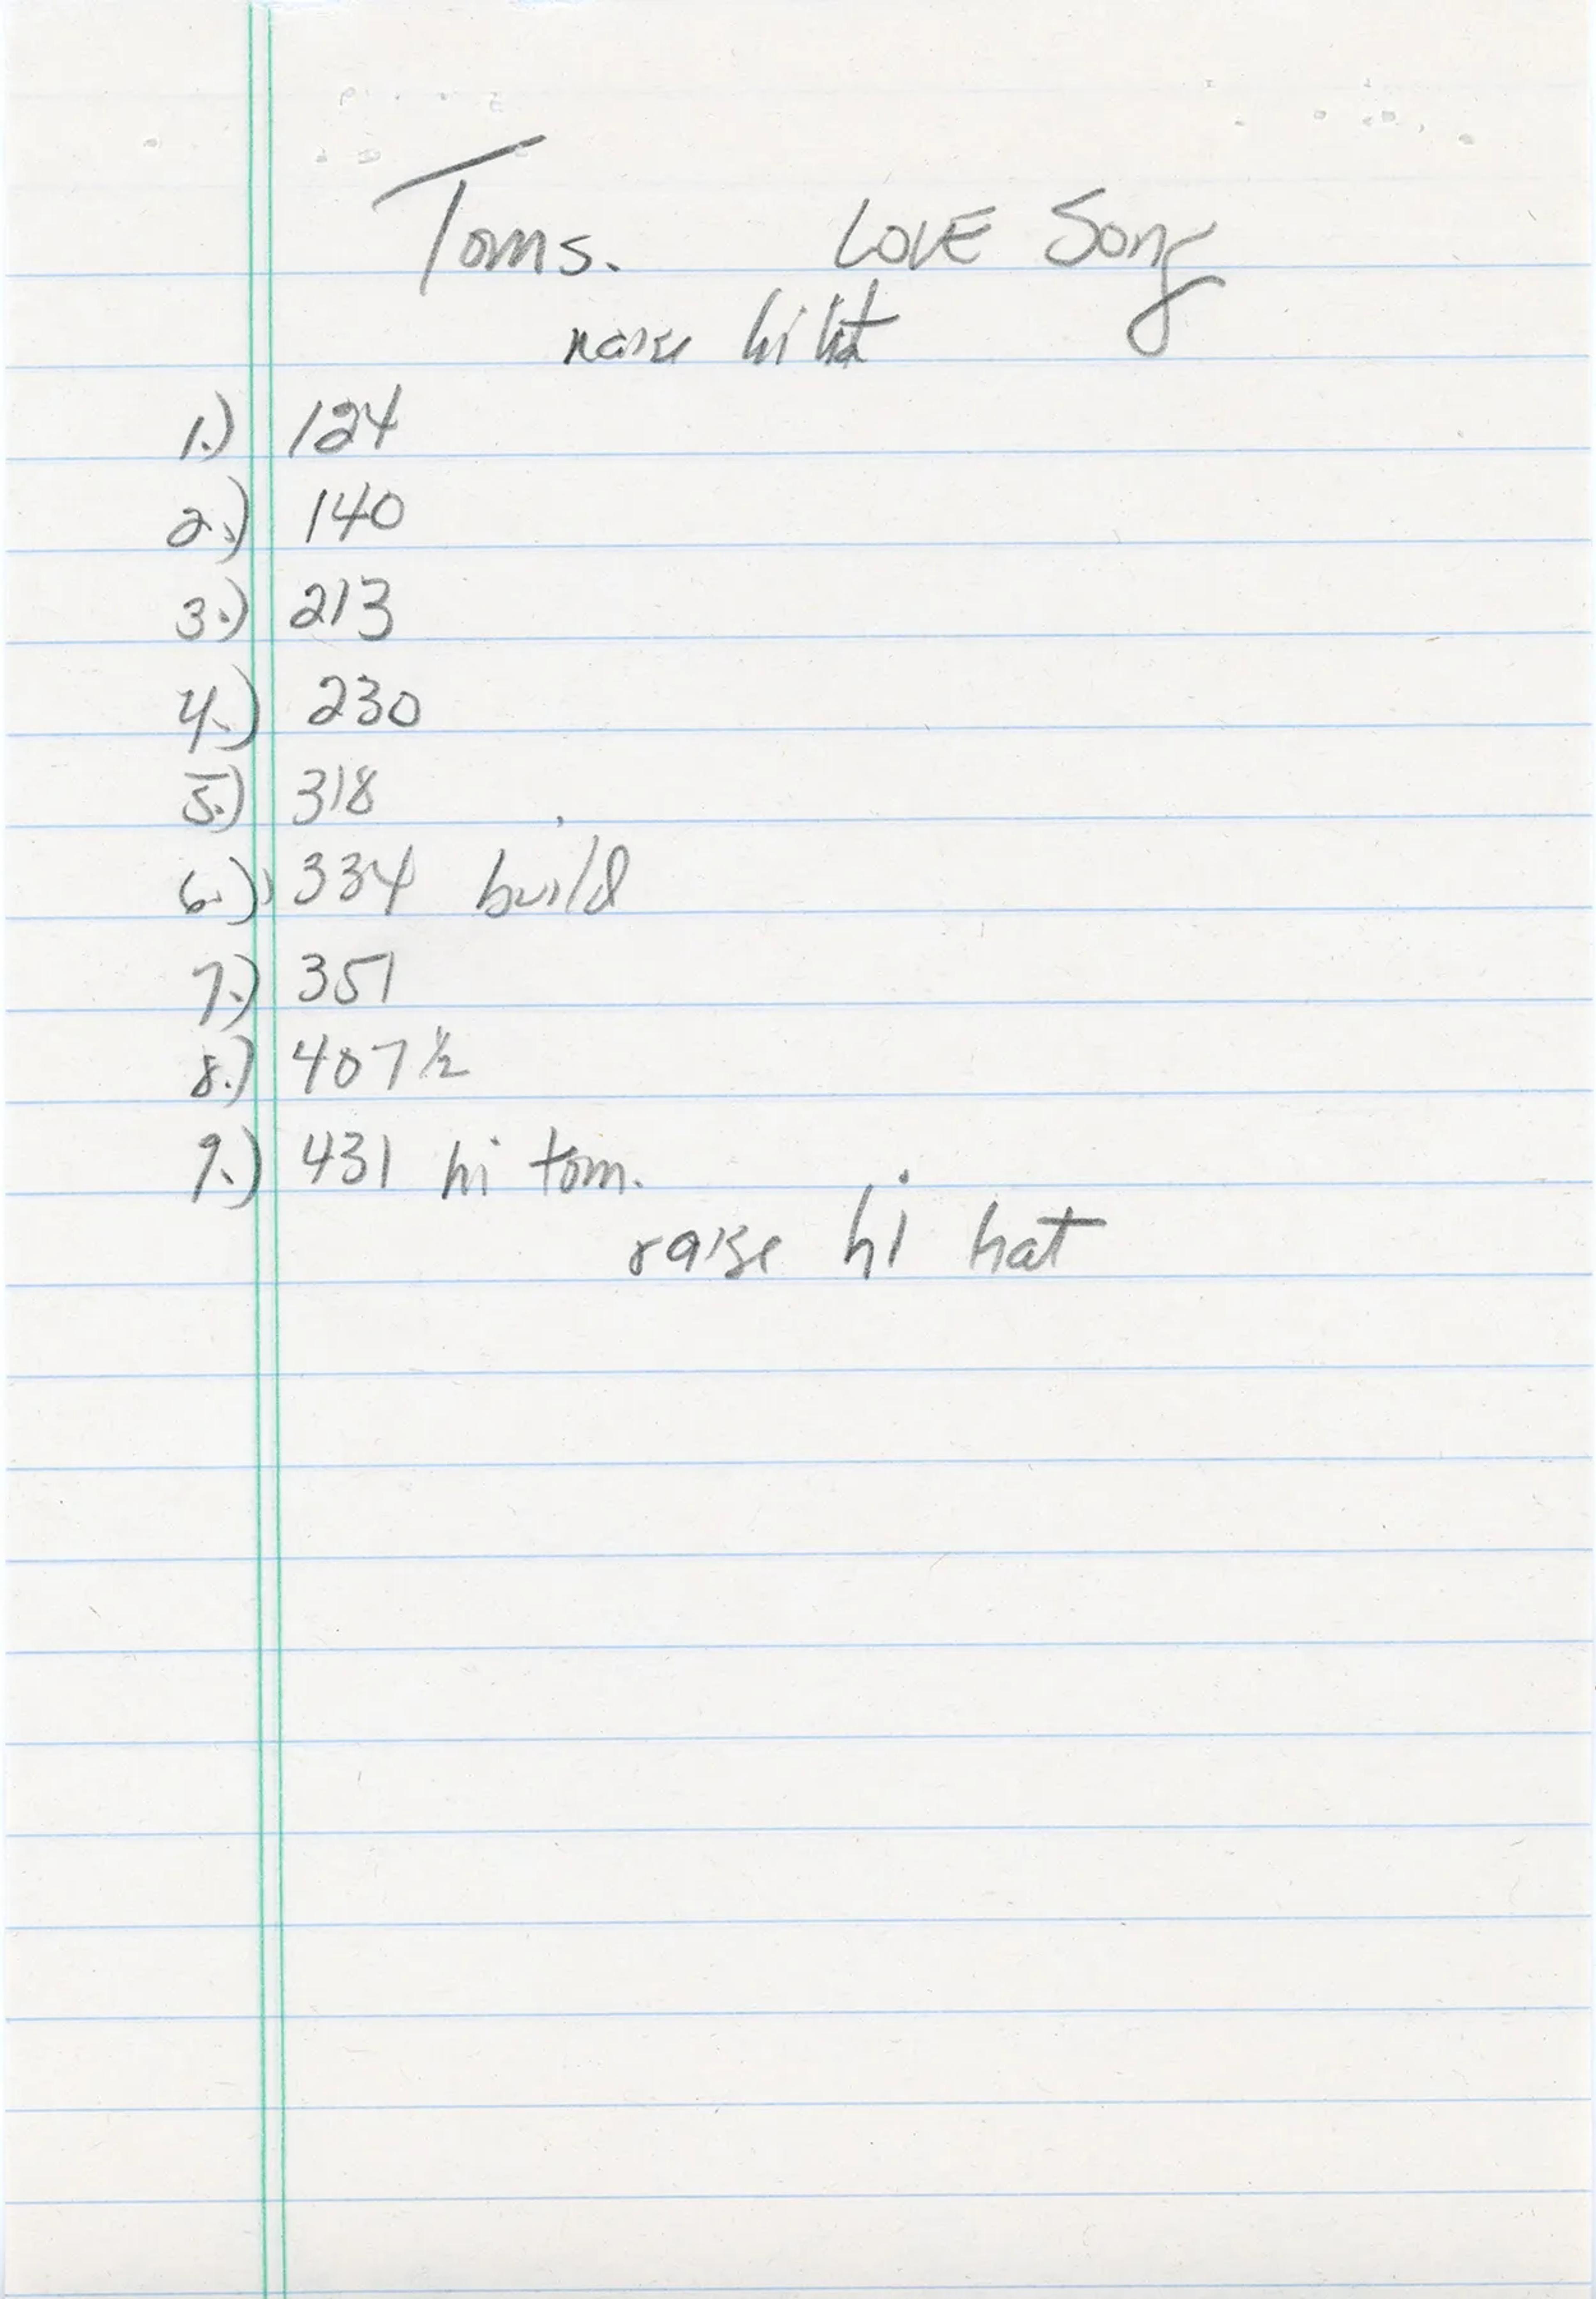 Toms. LOVE Song
raise hi hat
1.) 124
2.) 140
3.) 213
4.) 230
5.) 318
6.) 334 build
7.) 351
8.) 407 ½
9.) 431 hi tom.
raise hi hat